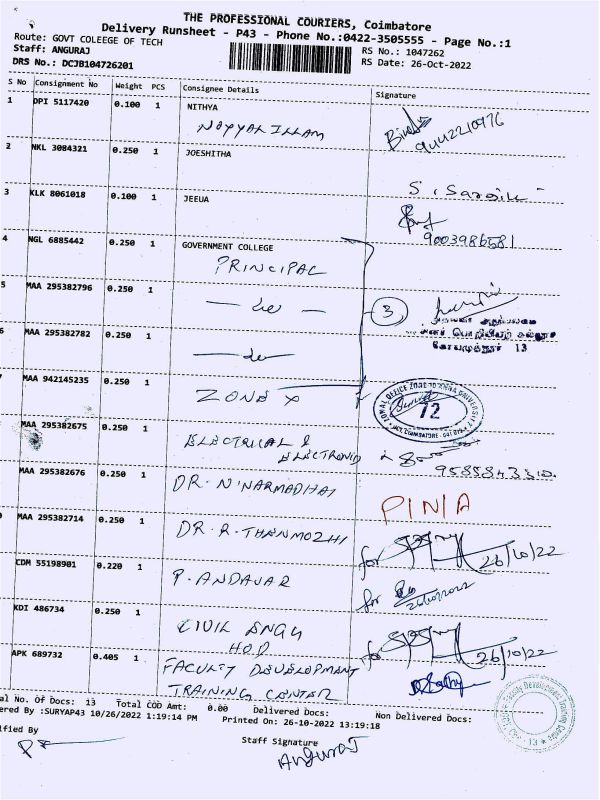 THE PROFESSIONAL COURIERS, Coimbatore
Delivery Runsheet - P43 - Phone No.:0422-3505555 - Page No.:1
Route: GOVT COLEEGE OF TECH
Staff: ANGURAJ
RS No.: 1047262
DRS No.: DCJB104726201
RS Date: 26-Oct-2022
S No Consignment No Weight PCS Consignee Details Signature
1 DPI 5117420 0.100 1 NITHYA
NOYYAL ILLAM
9442210976
2 NKL 3084321 0.250 1 JOESHITHA
3 KLK 8061018 0.100 1 JEEUA
9003986581
4 NGL 6885442 0.250 1 GOVERNMENT COLLEGE
PRINCIPAL
5 MAA 295382796 0.250 1 — do —
3
6 MAA 295382782 0.250 1 — do
13
MAA 942145235 0.250 1
ZONE X
72
MAA 295382675 0.250 1
ELECTRICAL &
ELECTRONIC
MAA 295382676 0.250 1 DR. N. NARMADHAI
MAA 295382714 0.250 1 DR. R. THENMOZHI
for 26/10/22
CDM 55198901 0.220 1 P. ANDAVAR
for
KDI 486734 0.250 1
CIVIL ENGG
H.O.D
for 26/10/22
APK 689732 0.405 1 FACULTY DEVELOPMENT
TRAINING CENTER
al No. Of Docs: 13 Total COD Amt: 0.00 Delivered Docs: Non Delivered Docs:
ered By :SURYAP43 10/26/2022 1:19:14 PM Printed On: 26-10-2022 13:19:18
ified By
Staff Signature
Anguraj